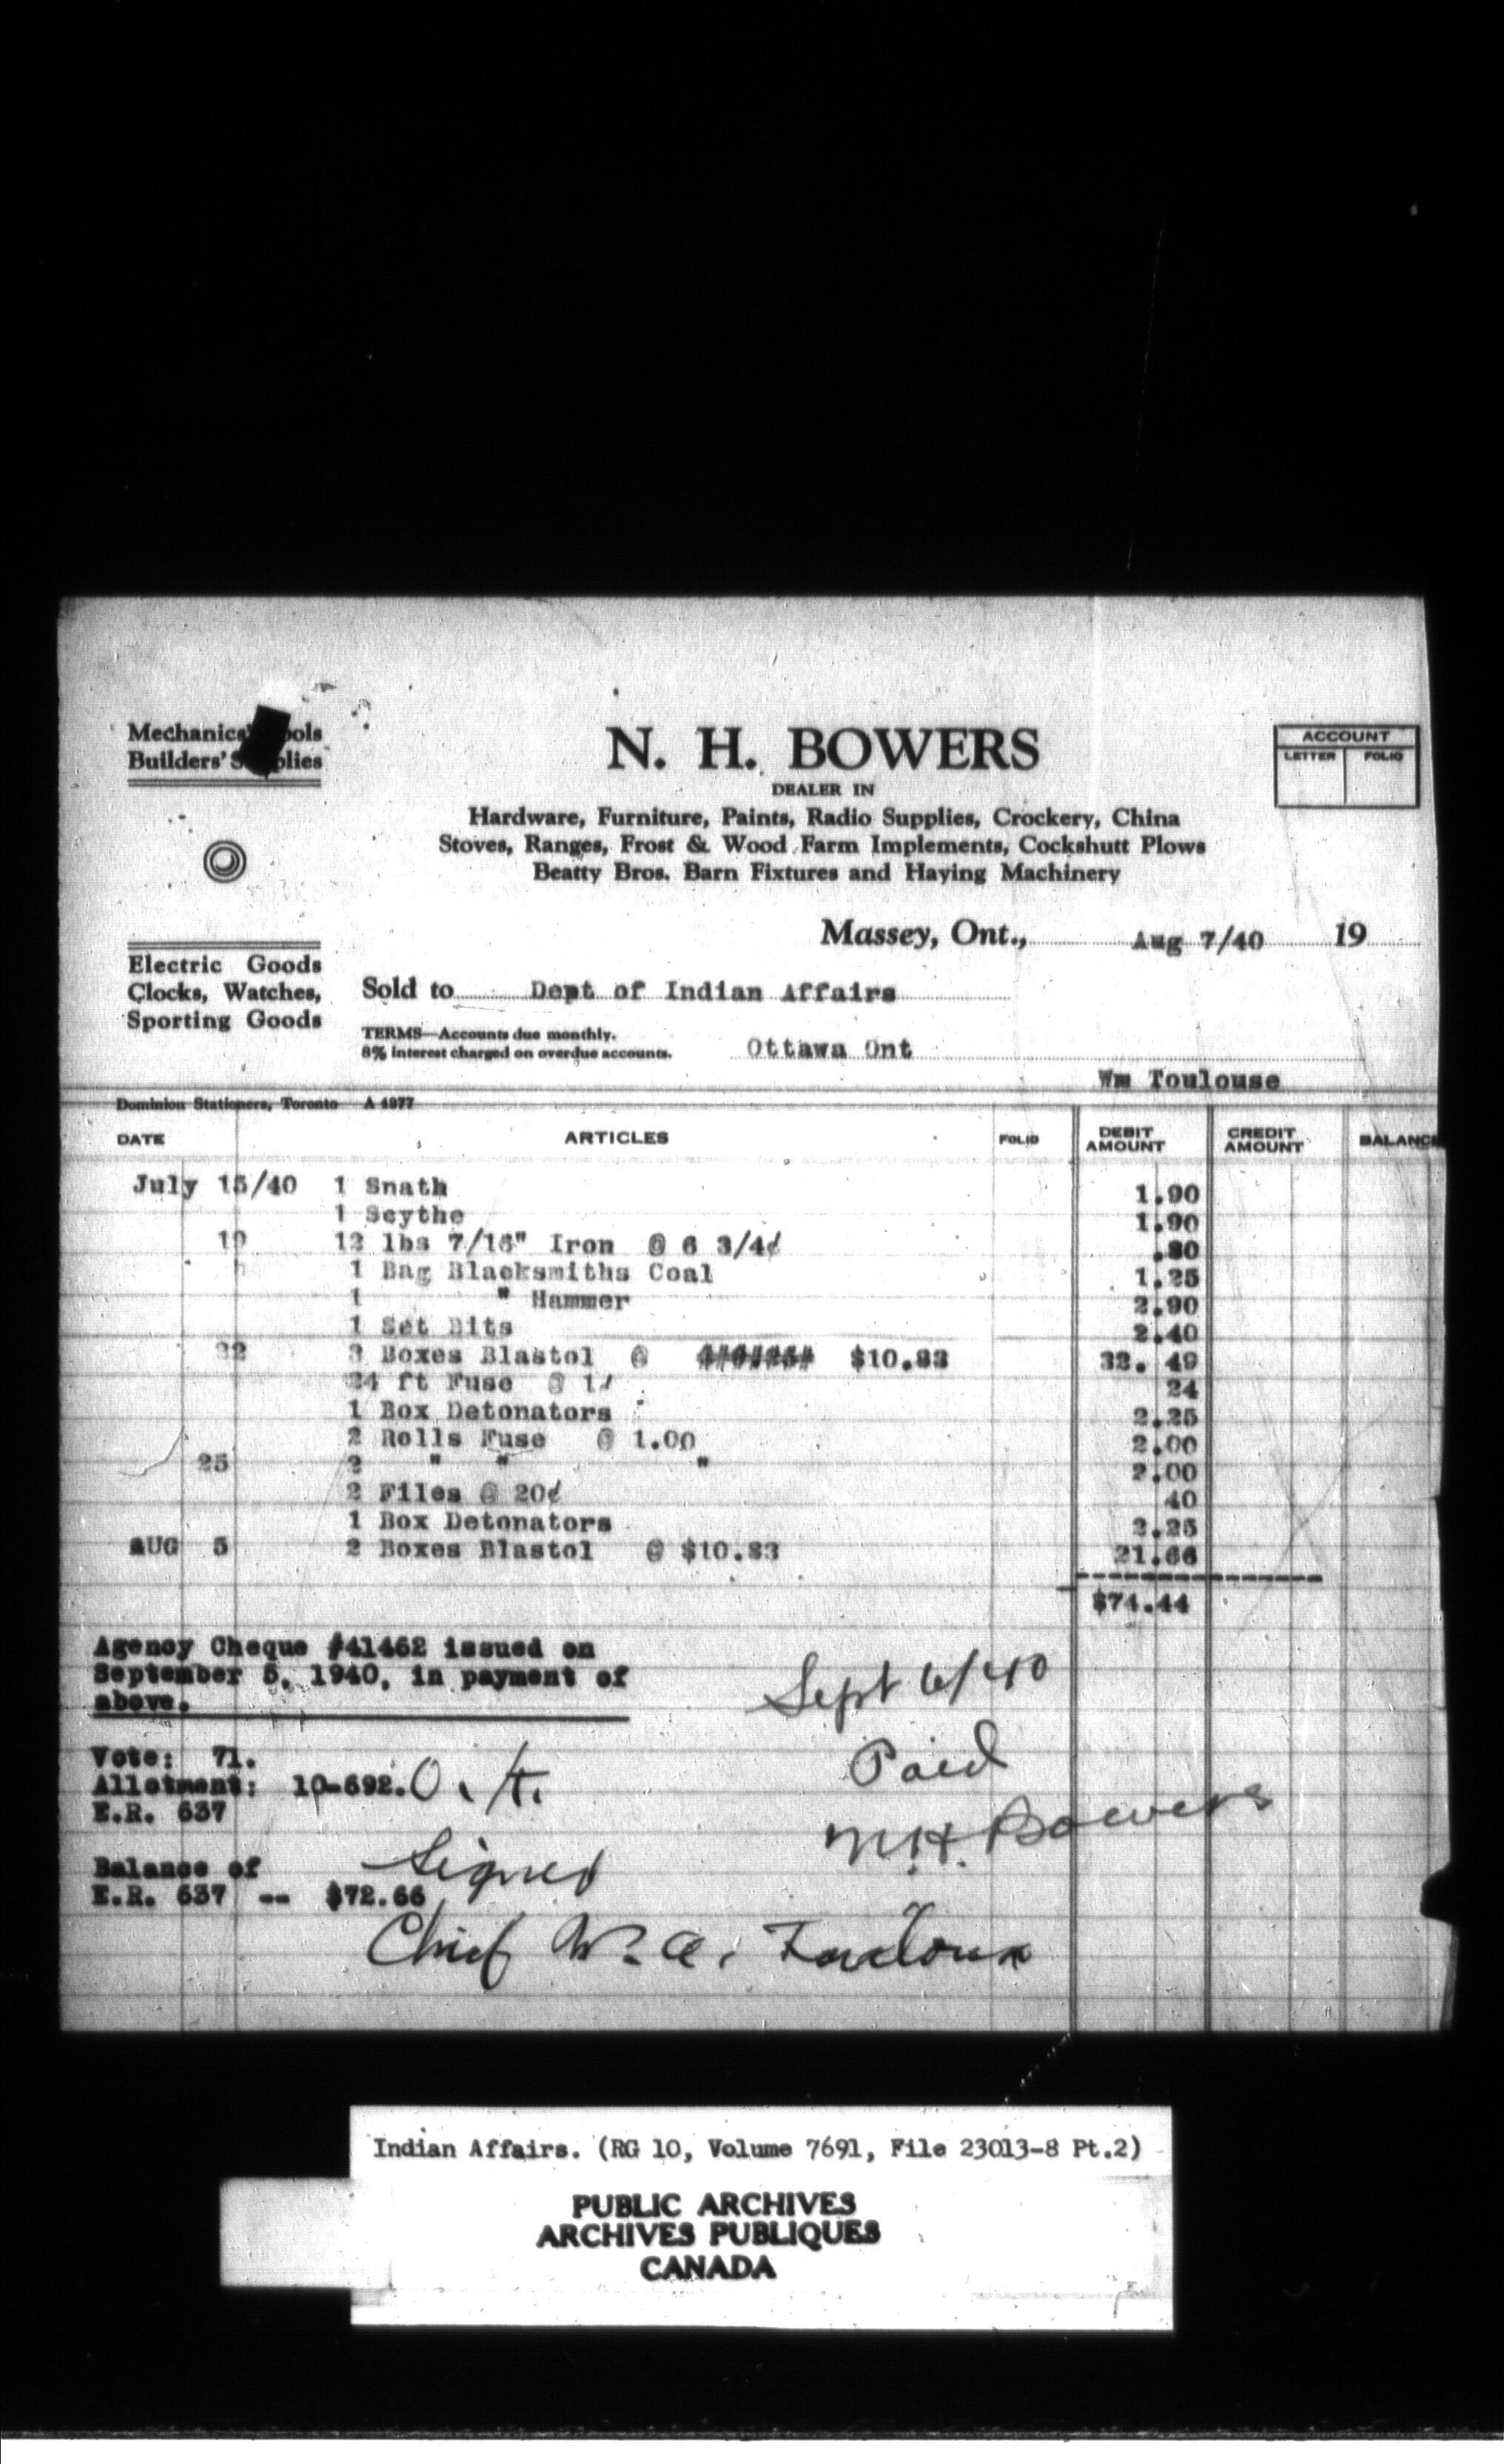 Mechanics' Tools
Builders' Supplies
N. H. BOWERS
DEALER IN
Hardware, Furniture, Paints, Radio Supplies, Crockery, China
Stoves, Ranges, Frost & Wood Farm Implements, Cockshutt Plows
Beatty Bros. Barn Fixtures and Haying Machinery
ACCOUNT
LETTER FOLIO
Massey, Ont., Aug 7/40 19
Electric Goods
Clocks, Watches,
Sporting Goods
Sold to Dept of Indian Affairs
TERMS—Accounts due monthly.
8% interest charged on overdue accounts.
Ottawa Ont
Wm Toulouse
Dominion Stationers, Toronto A 4977
DATE ARTICLES FOLIO DEBIT AMOUNT CREDIT AMOUNT BALANCE
July 15/40 1 Snath 1.90
1 Scythe 1.90
19 12 lbs 7/16" Iron @ 6 3/4¢ .80
1 Bag Blacksmiths Coal 1.25
1 " Hammer 2.90
1 Set Bits 2.40
22 3 Boxes Blastol @ $10.83 32. 49
24 ft Fuse @ 1¢ 24
1 Box Detonators 2.25
2 Rolls Fuse @ 1.00 2.00
25 2 " " " 2.00
2 Files @ 20¢ 40
1 Box Detonators 2.25
AUG 5 2 Boxes Blastol @ $10.83 21.66
$74.44
Agency Cheque #41462 issued on
September 5, 1940, in payment of
above.
Sept 6/40
Paid
N.H. Bowers
Vote: 71.
Allotment: 10-692. O. /t.
E.R. 637
Balance of
E.R. 637 -- $72.66
Signed
Chief W. A.
Indian Affairs. (RG 10, Volume 7691, File 23013-8 Pt.2)
PUBLIC ARCHIVES
ARCHIVES PUBLIQUES
CANADA